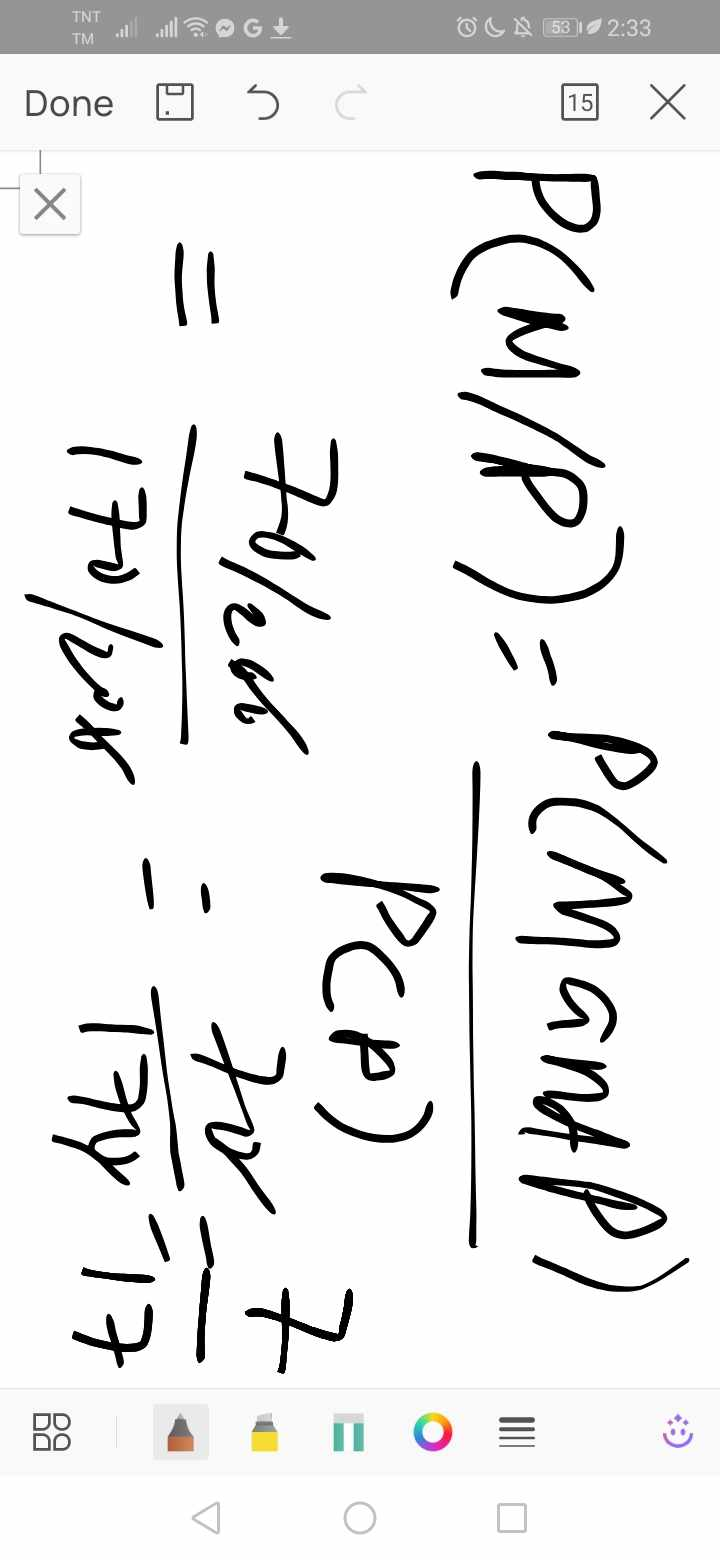 TNT
TM
53
2:33
Done
15
P(M/P) = P(M and P)
P(P)
= 70/200 = 70 = 7
170/200 170 17